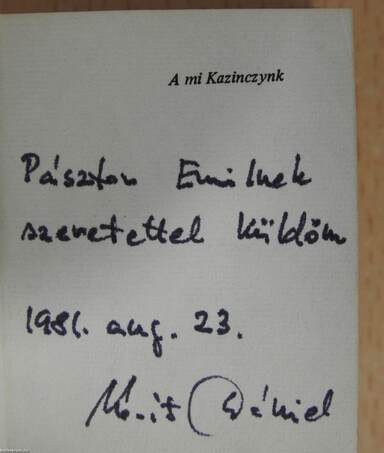 A mi Kazinczynk
Pásztor Emilnek
szeretettel küldöm
1981. aug. 23.
Dániel